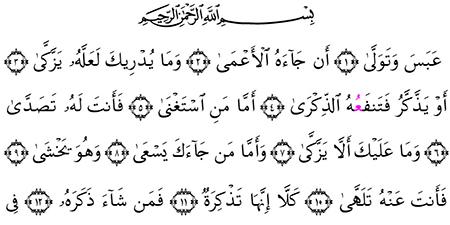 بِسْمِ ٱللَّهِ ٱلرَّحْمَٰنِ ٱلرَّحِيمِ
عَبَسَ وَتَوَلَّىٰٓ ﴿١﴾ أَن جَآءَهُ ٱلْأَعْمَىٰ ﴿٢﴾ وَمَا يُدْرِيكَ لَعَلَّهُۥ يَزَّكَّىٰٓ ﴿٣﴾
أَوْ يَذَّكَّرُ فَتَنفَعُهُ ٱلذِّكْرَىٰٓ ﴿٤﴾ أَمَّا مَنِ ٱسْتَغْنَىٰ ﴿٥﴾ فَأَنتَ لَهُۥ تَصَدَّىٰ
﴿٦﴾ وَمَا عَلَيْكَ أَلَّا يَزَّكَّىٰ ﴿٧﴾ وَأَمَّا مَن جَآءَكَ يَسْعَىٰ ﴿٨﴾ وَهُوَ يَخْشَىٰ ﴿٩﴾
فَأَنتَ عَنْهُ تَلَهَّىٰ ﴿١٠﴾ كَلَّآ إِنَّهَا تَذْكِرَةٌ ﴿١١﴾ فَمَن شَآءَ ذَكَرَهُۥ ﴿١٢﴾ فِى